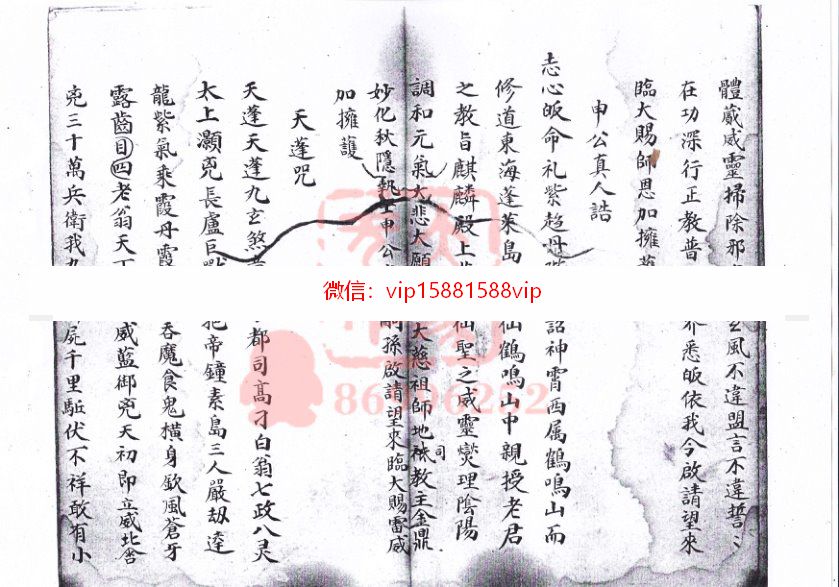 體蕆威靈掃除邪 風不違盟言不違誓〻
在功深行正教普 悉皈依我今啟請望來
臨大賜師恩加擁護
申公真人誥
志心皈命礼紫趋丹 詔神霄西属鶴鳴山而
修道東海蓬莱島 仙鶴鳴山中親授老君
之教旨麒麟殿上 仙聖之威靈爕理陰陽
調和元氣大悲大願 大慈祖師地祇司教主金鼎
妙化秋隱執士申公 嗣孫啟請望來臨大賜雷威
加擁護
天蓬咒
天蓬天蓬九玄煞 都司高刁白翁七政八灵
太上灝兇長盧巨獸 把帝鐘素島三人嚴刼逵
龍紫氣乘霞丹霞 吞魔食鬼橫身欽風蒼牙
露齒目四老翁天丁 威藍御兇天初即立威北舍
兇三十萬兵衛我九 屍千里駈伏不祥敢有小
微信：vip15881588vip